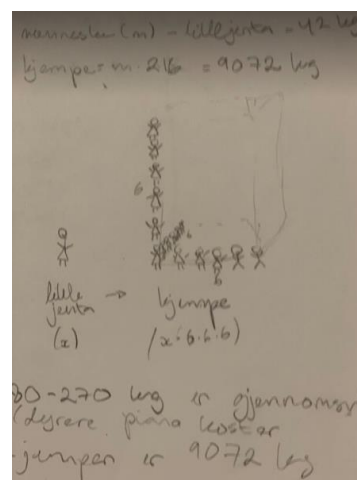 menneske (m) - lille jenta = 42 kg
kjempe = m · 216 = 9072 kg
6
6
6
lille → kjempe
jenta
(x) (x·6·6·6)
80-270 kg er gjennomsn
(dyrere piano koster
jempen er 9072 kg